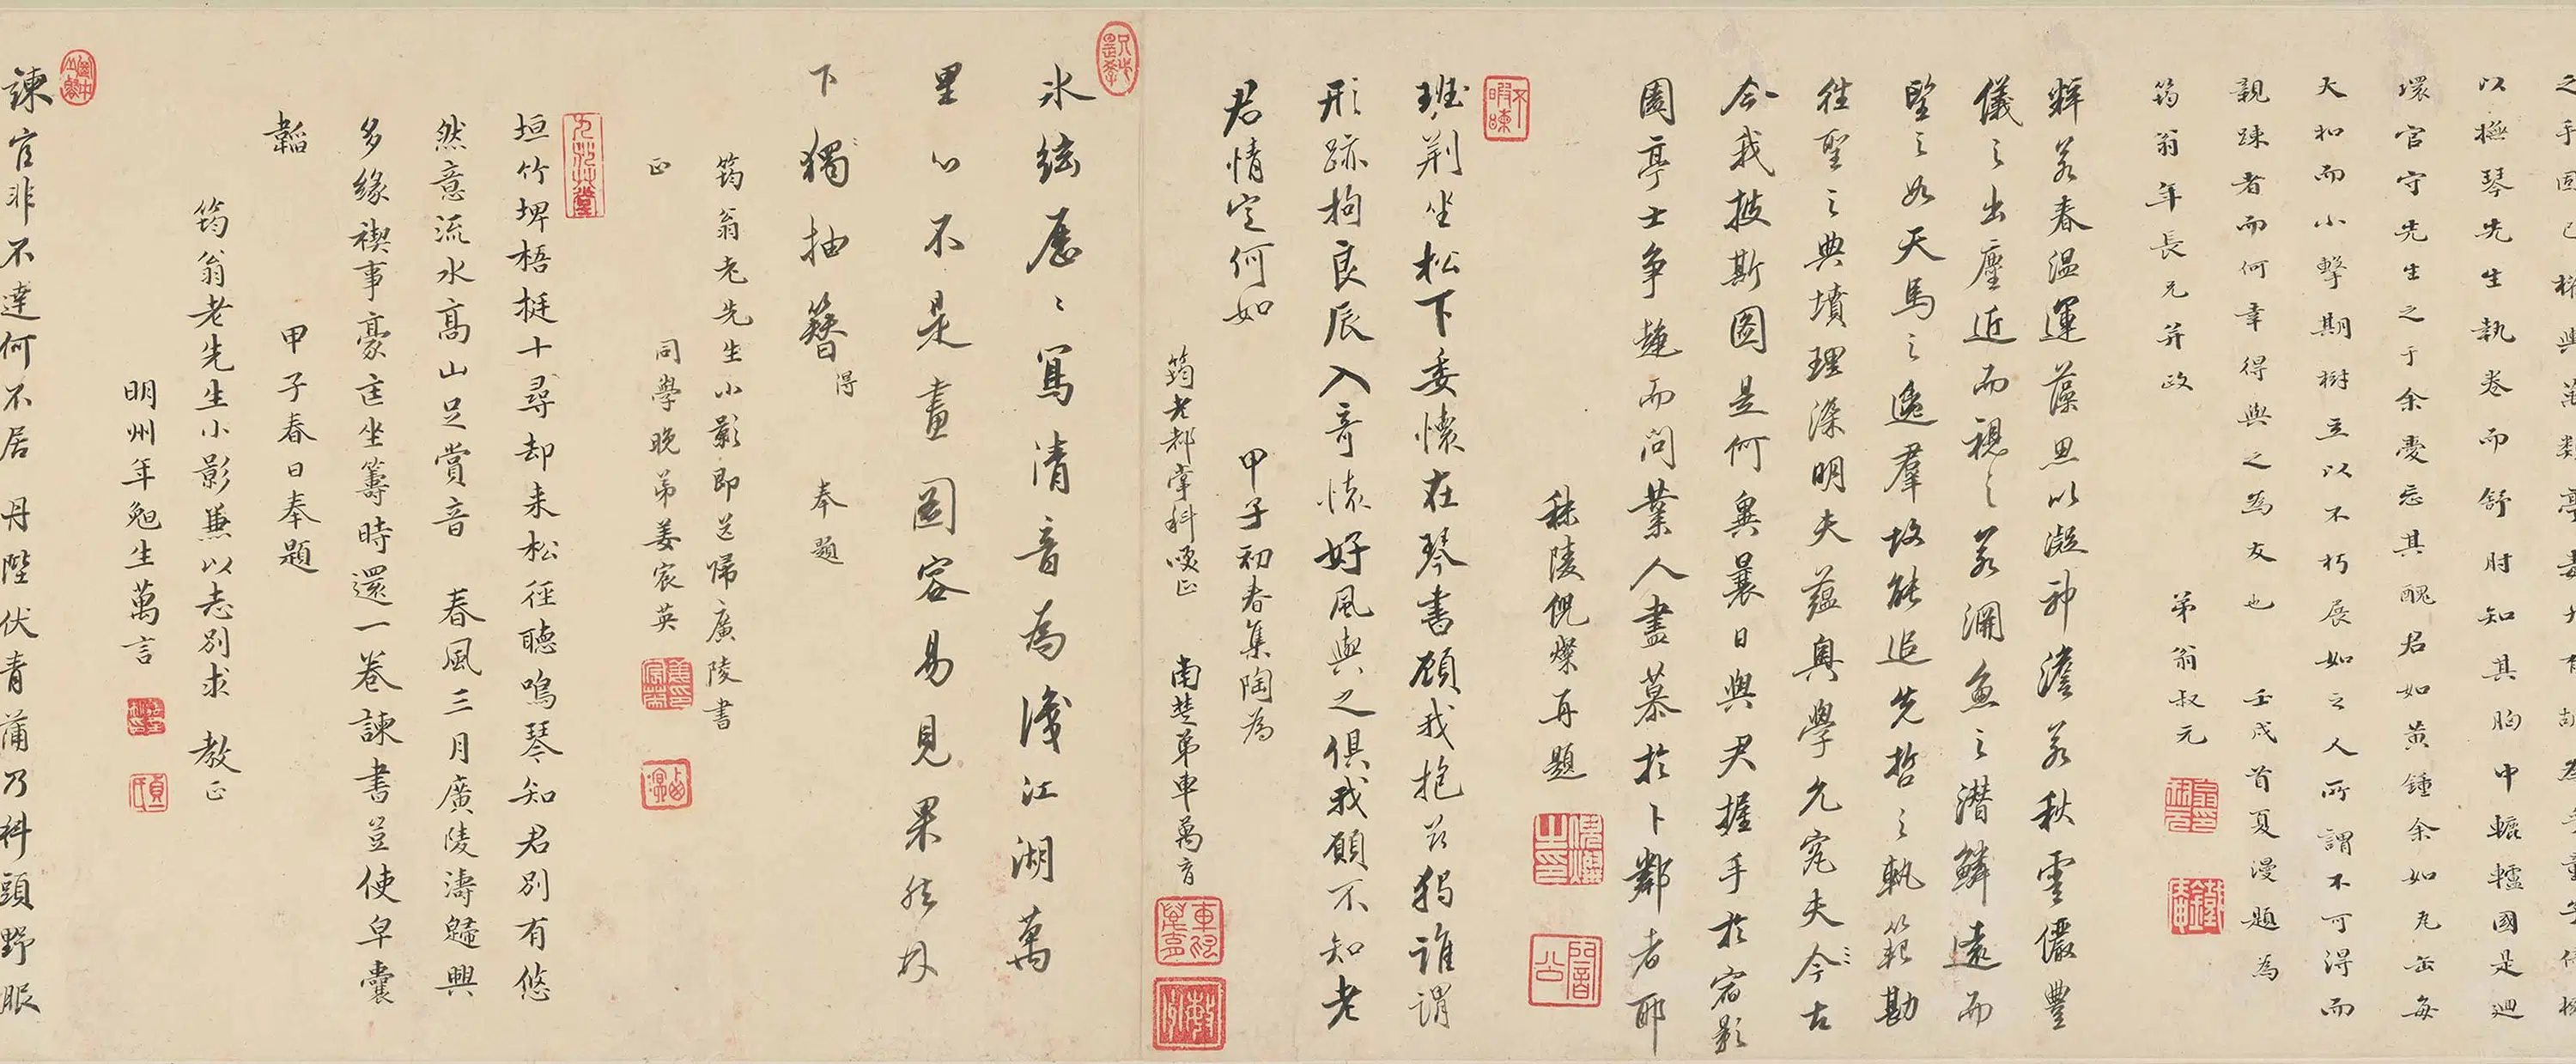 以撫琴先生執卷而舒肘知其胸中轆轤國是迴
環官守先生之于余憂忘其醜君如黃鍾余如瓦缶每
天和而小擊期樹立以不朽展如之人所謂不可得而
親踈者而何幸得與之為友也 壬戌首夏漫題為
筠翁年長兄并政 弟翁叔元
粹若春溫運藻思以凝神澹若秋雲儼豐
儀之出塵近而視之若淵魚之潛鱗遠而
望之如天馬之逸羣故能追先哲之軌範勘
往聖之典墳理深明夫蘊奧學允究夫今古
今我披斯圖是何異曩日與君握手於宿影
園亭士爭趨而問業人盡慕於卜鄰者耶
秣陵倪燦再題
班荆坐松下委懷在琴書顧我抱茲獨誰謂
形跡拘良辰入奇懷好風與之俱我願不知老
君情定何如 甲子初春集陶為
筠老都掌科暎正 南楚弟車萬育
冰絃歷歷寫清音為淺江湖萬
里心不是畫圖容易見果然林
下獨抽簪 得 奉題
筠翁老先生小影即送歸廣陵書
正 同學晚弟姜宸英
垣竹埤梧挺十尋却来松徑聽鳴琴知君別有悠
然意流水高山足賞音 春風三月廣陵濤歸興
多緣禊事豪匡坐籌時還一卷諫書豈使皁囊
韜 甲子春日奉題
筠翁老先生小影兼以志別求 教正
明州年勉生萬言
諫官非不達何不居 丹陛伏青蒲乃科頭野服